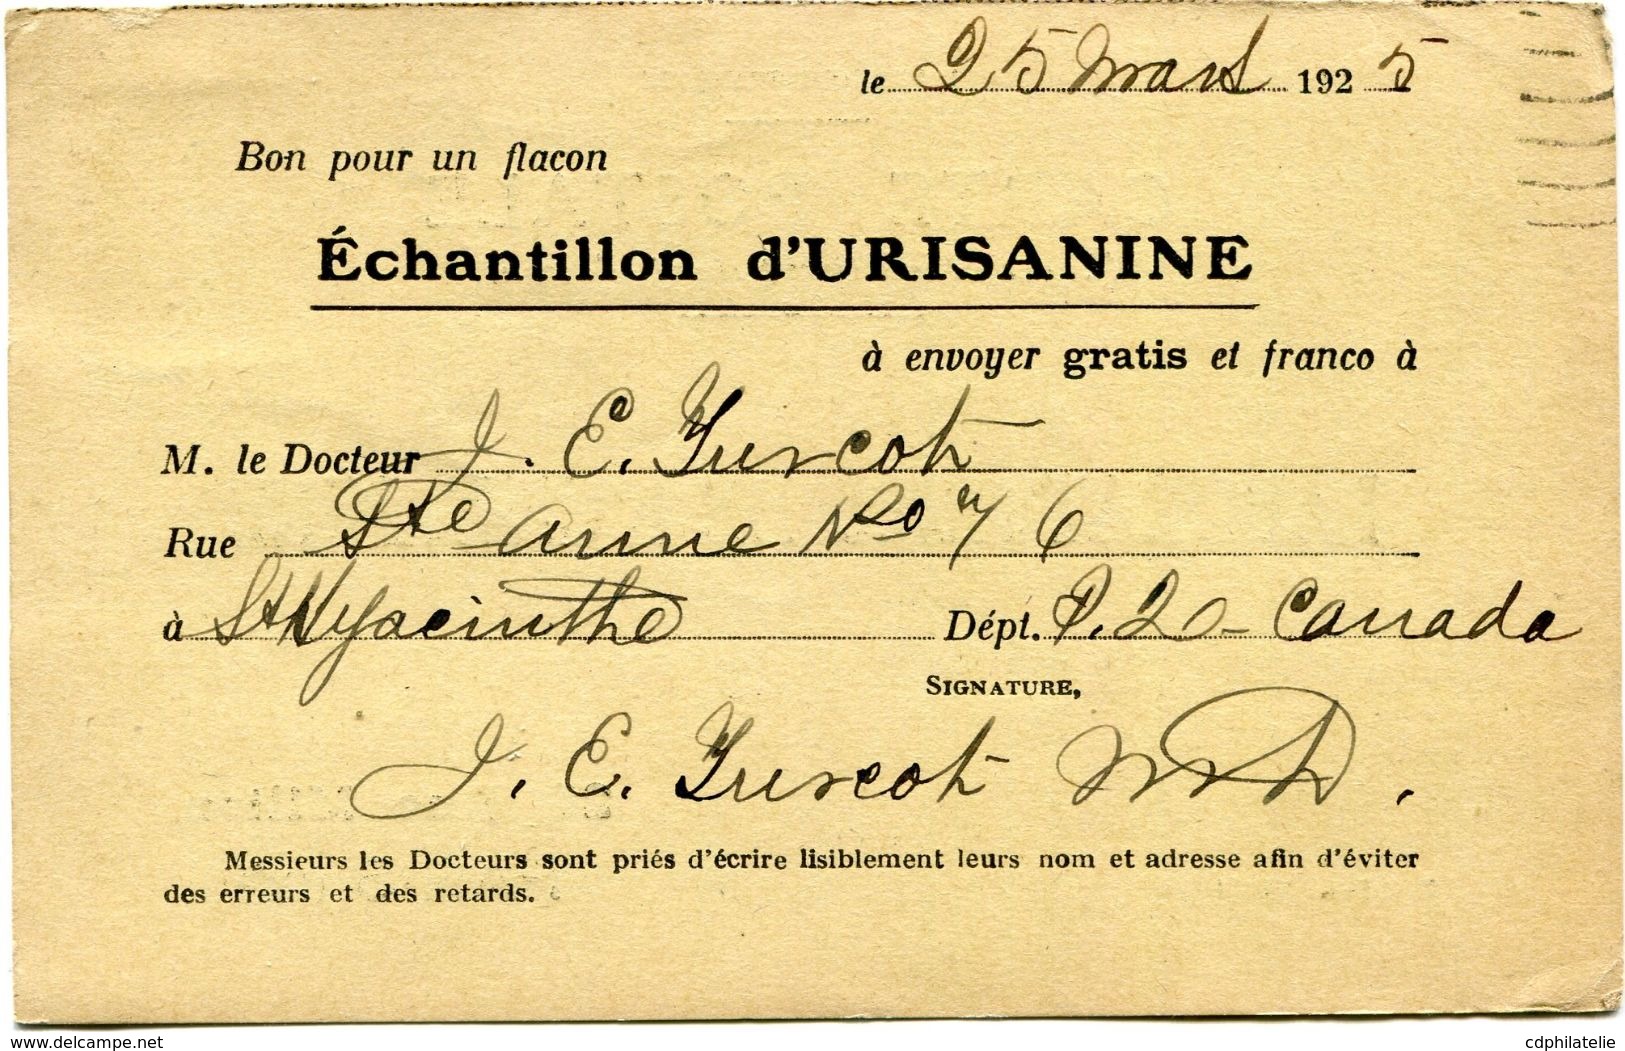 le 25 Mars 1925
Bon pour un flacon
Échantillon d'URISANINE
à envoyer gratis et franco à
M. le Docteur J. E. Turcot
Rue Ste Anne No 76
à St Hyacinthe Dépt. P. 2. Canada
SIGNATURE,
J. E. Turcot MD.
Messieurs les Docteurs sont priés d'écrire lisiblement leurs nom et adresse afin d'éviter
des erreurs et des retards.
www.delcampe.net
cdphilatelie